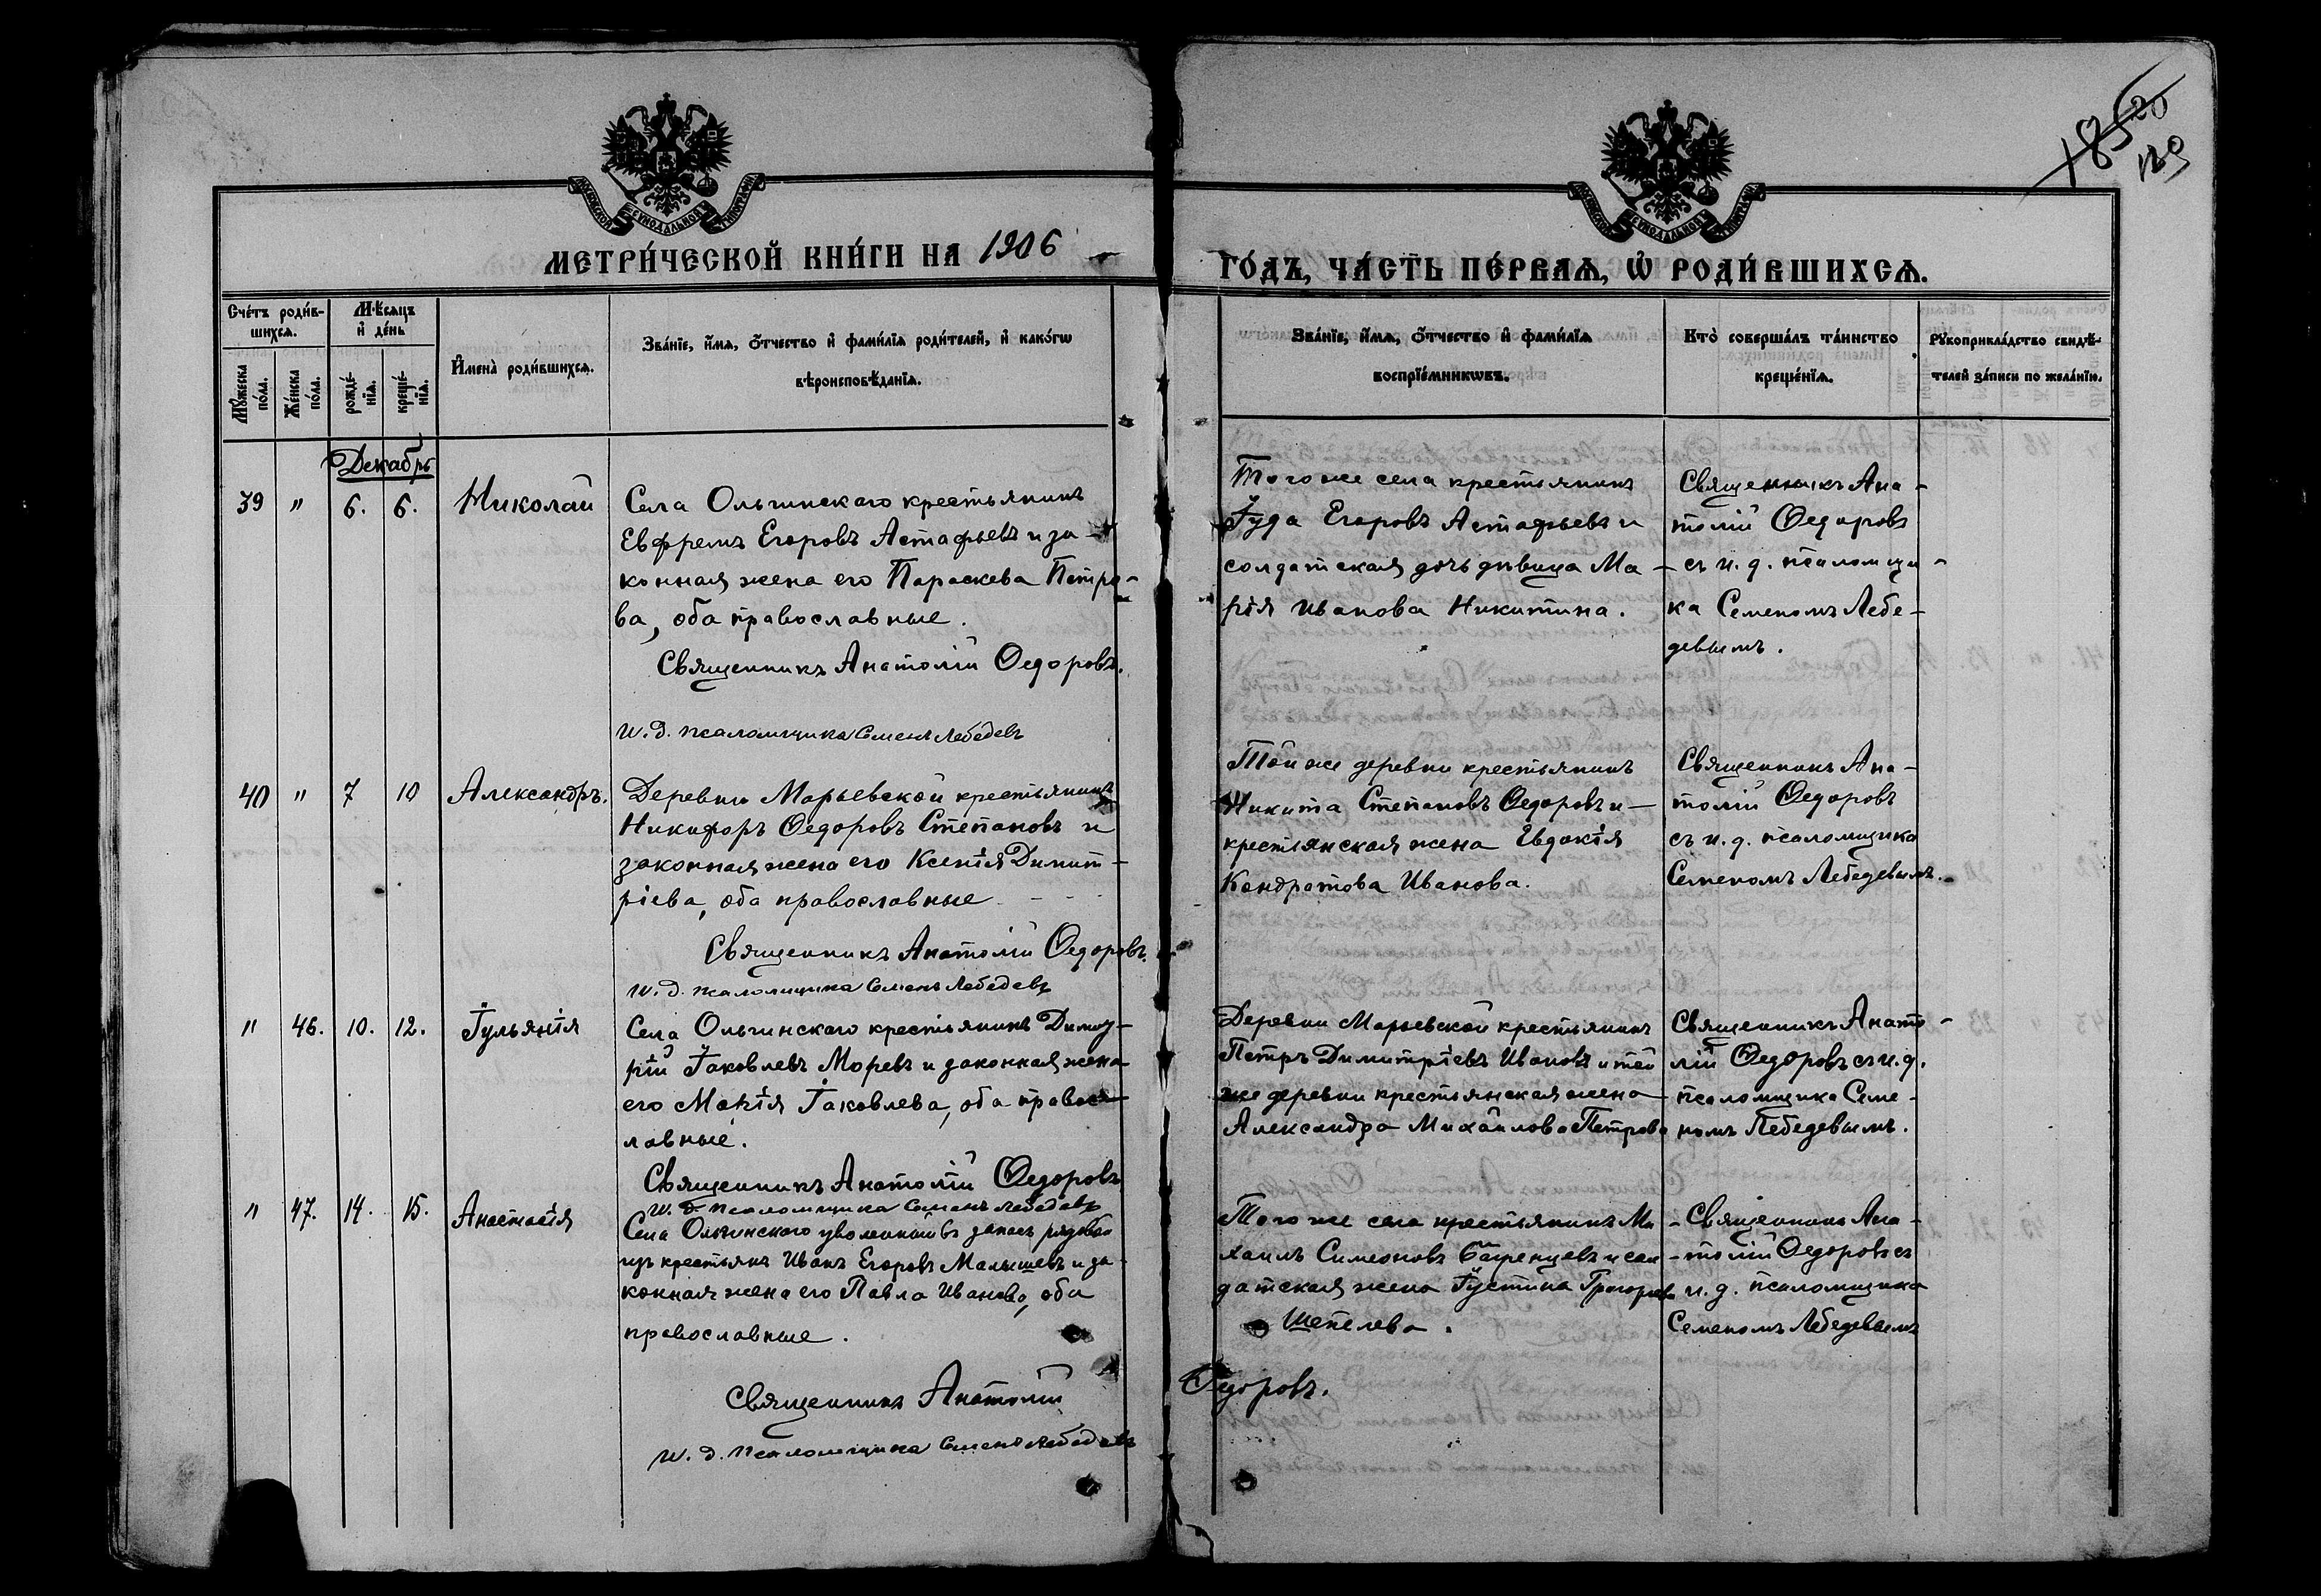 18520
129
МОСКОВСКОЙ СѴНОДАЛЬНОЙ ТИПОГРАФІИ
МОСКОВСКОЙ СѴНОДАЛЬНОЙ ТИПОГРАФІИ
МЕТРИ́ЧЕСКОЙ КНИ́ГИ НА 1906
ГО́ДЪ, ЧА́СТЬ ПЕ́РВАѦ, Ѡ҆ РОДИ́ВШИХСѦ.
Сче́тъ роди́в-
шихсѧ.
Мꙋ́жеска по́ла.
Же́нска по́ла.
Мѣ́сѧцъ
и҆ де́нь
рожде́-
нїѧ.
креще́-
нїѧ.
И҆мена̀ роди́вшихсѧ.
Зва́нїе, и҆́мѧ, ѻ҆́тчество и҆ фами́лїѧ роди́телей, и҆ како́гѡ
вѣроисповѣ́данїѧ.
Зва́нїе, и҆́мѧ, ѻ҆́тчество и҆ фами́лїѧ
воспрїе́мникѡвъ.
Кто̀ соверша́лъ та́инство
креще́нїѧ.
Рꙋкоприкла́дство свидѣ́-
телей за́писи по жела́нїю.
Декабрь
39 " 6. 6. Николай
Села Ольгинскаго крестьянинъ
Евфремъ Егоровъ Астафьевъ и за-
конная жена его Параскева Петро-
ва, оба православные.
Священникъ Анатолій Ѳедоровъ.
И. д. псаломщика Семенъ Лебедевъ
Того же села крестьянинъ
Іуда Егоровъ Астафьевъ и
солдатская дочь дѣвица Ма-
рія Иванова Никитина.
Священникъ Ана-
толій Ѳедоровъ
съ и. д. псаломщи-
ка Семеномъ Лебе-
девымъ.
40 " 7 10 Александръ.
Деревни Марьевской крестьянинъ
Никифоръ Ѳедоровъ Степановъ и
законная жена его Ксенія Димит-
ріева, оба православные
Священникъ Анатолій Ѳедоровъ.
И. д. псаломщика Семенъ Лебедевъ
Той же деревни крестьянинъ
Никита Степановъ Ѳедоровъ и
крестьянская жена Евдокія
Кондратова Иванова.
Священникъ Ана-
толій Ѳедоровъ
съ и. д. псаломщика
Семеномъ Лебедевымъ.
" 46. 10. 12. Іульянія
Села Ольгинскаго крестьянинъ Димит-
рій Іаковлевъ Моревъ и законная жена
его Марія Іаковлева, оба правос-
лавные.
Священникъ Анатолій Ѳедоровъ
И. д. псаломщика Семенъ Лебедевъ
Деревни Марьевской крестьянинъ
Петръ Димитріевъ Ивановъ и той
же деревни крестьянская жена
Александра Михайлова Петрова
Священникъ Анато-
лій Ѳедоровъ съ и. д.
псаломщика Семе-
номъ Лебедевымъ.
" 47. 14. 15. Анастасія
Села Ольгинскаго уволенный въ запасъ рядовой
изъ крестьянъ Иванъ Егоровъ Малышевъ и за-
конная жена его Павла Иванова, оба
православные.
Священникъ Анатолій
Ѳедоровъ.
И. д. псаломщика Семенъ Лебедевъ
Того же села крестьянинъ Ми-
хаилъ Симеоновъ и сол-
датская жена Іустина Григорьева
Шепелева.
Священникъ Ана-
толій Ѳедоровъ съ
и. д. псаломщика
Семеномъ Лебедевымъ